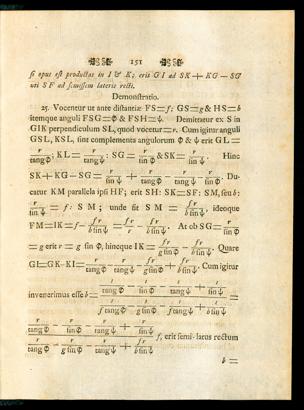 151
si opus est productas in I & K; erit G I ad SK + KG — SG
uti S F ad semissem lateris recti.
Demonstratio.
25. Vocentur ut ante distantiæ FS = f; GS = g & HS = b
itemque anguli FSG = Φ & FSH = ψ. Demittatur ex S in
GIK perpendiculum SL, quod vocetur = r. Cum igitur anguli
GSL, KSL, sint complementa angulorum Φ & ψ erit GL =
r/tang Φ; KL = r/tang ψ; SG = r/sin Φ & SK = r/sin ψ. Hinc
SK + KG — SG = r/sin ψ + r/tang Φ — r/tang ψ — r/sin Φ. Du-
catur KM parallela ipsi HF; erit SH: SK = SF: SM, seu b:
r/sin ψ = f: SM; unde fit SM = fr/b sin ψ, ideoque
FM = IK = f — fr/b sin ψ = fr/r — fr/b sin ψ. At ob SG = r/sin Φ
= g erit r = g sin Φ, hincque IK = fr/g sin Φ — fr/b sin ψ. Quare
GI = GK - KI = r/tang Φ — r/tang ψ — fr/g sin Φ + fr/b sin ψ. Cum igitur
invenerimus esse b = 1/tang Φ — 1/sin Φ — 1/tang ψ + 1/sin ψ =
1/f tang Φ — 1/g sin Φ — 1/f tang ψ + 1/b sin ψ
r/tang Φ — r/sin Φ — r/tang ψ + r/sin ψ
f, erit semi-latus rectum
r/tang Φ — fr/g sin Φ — r/tang ψ + fr/b sin ψ
b =